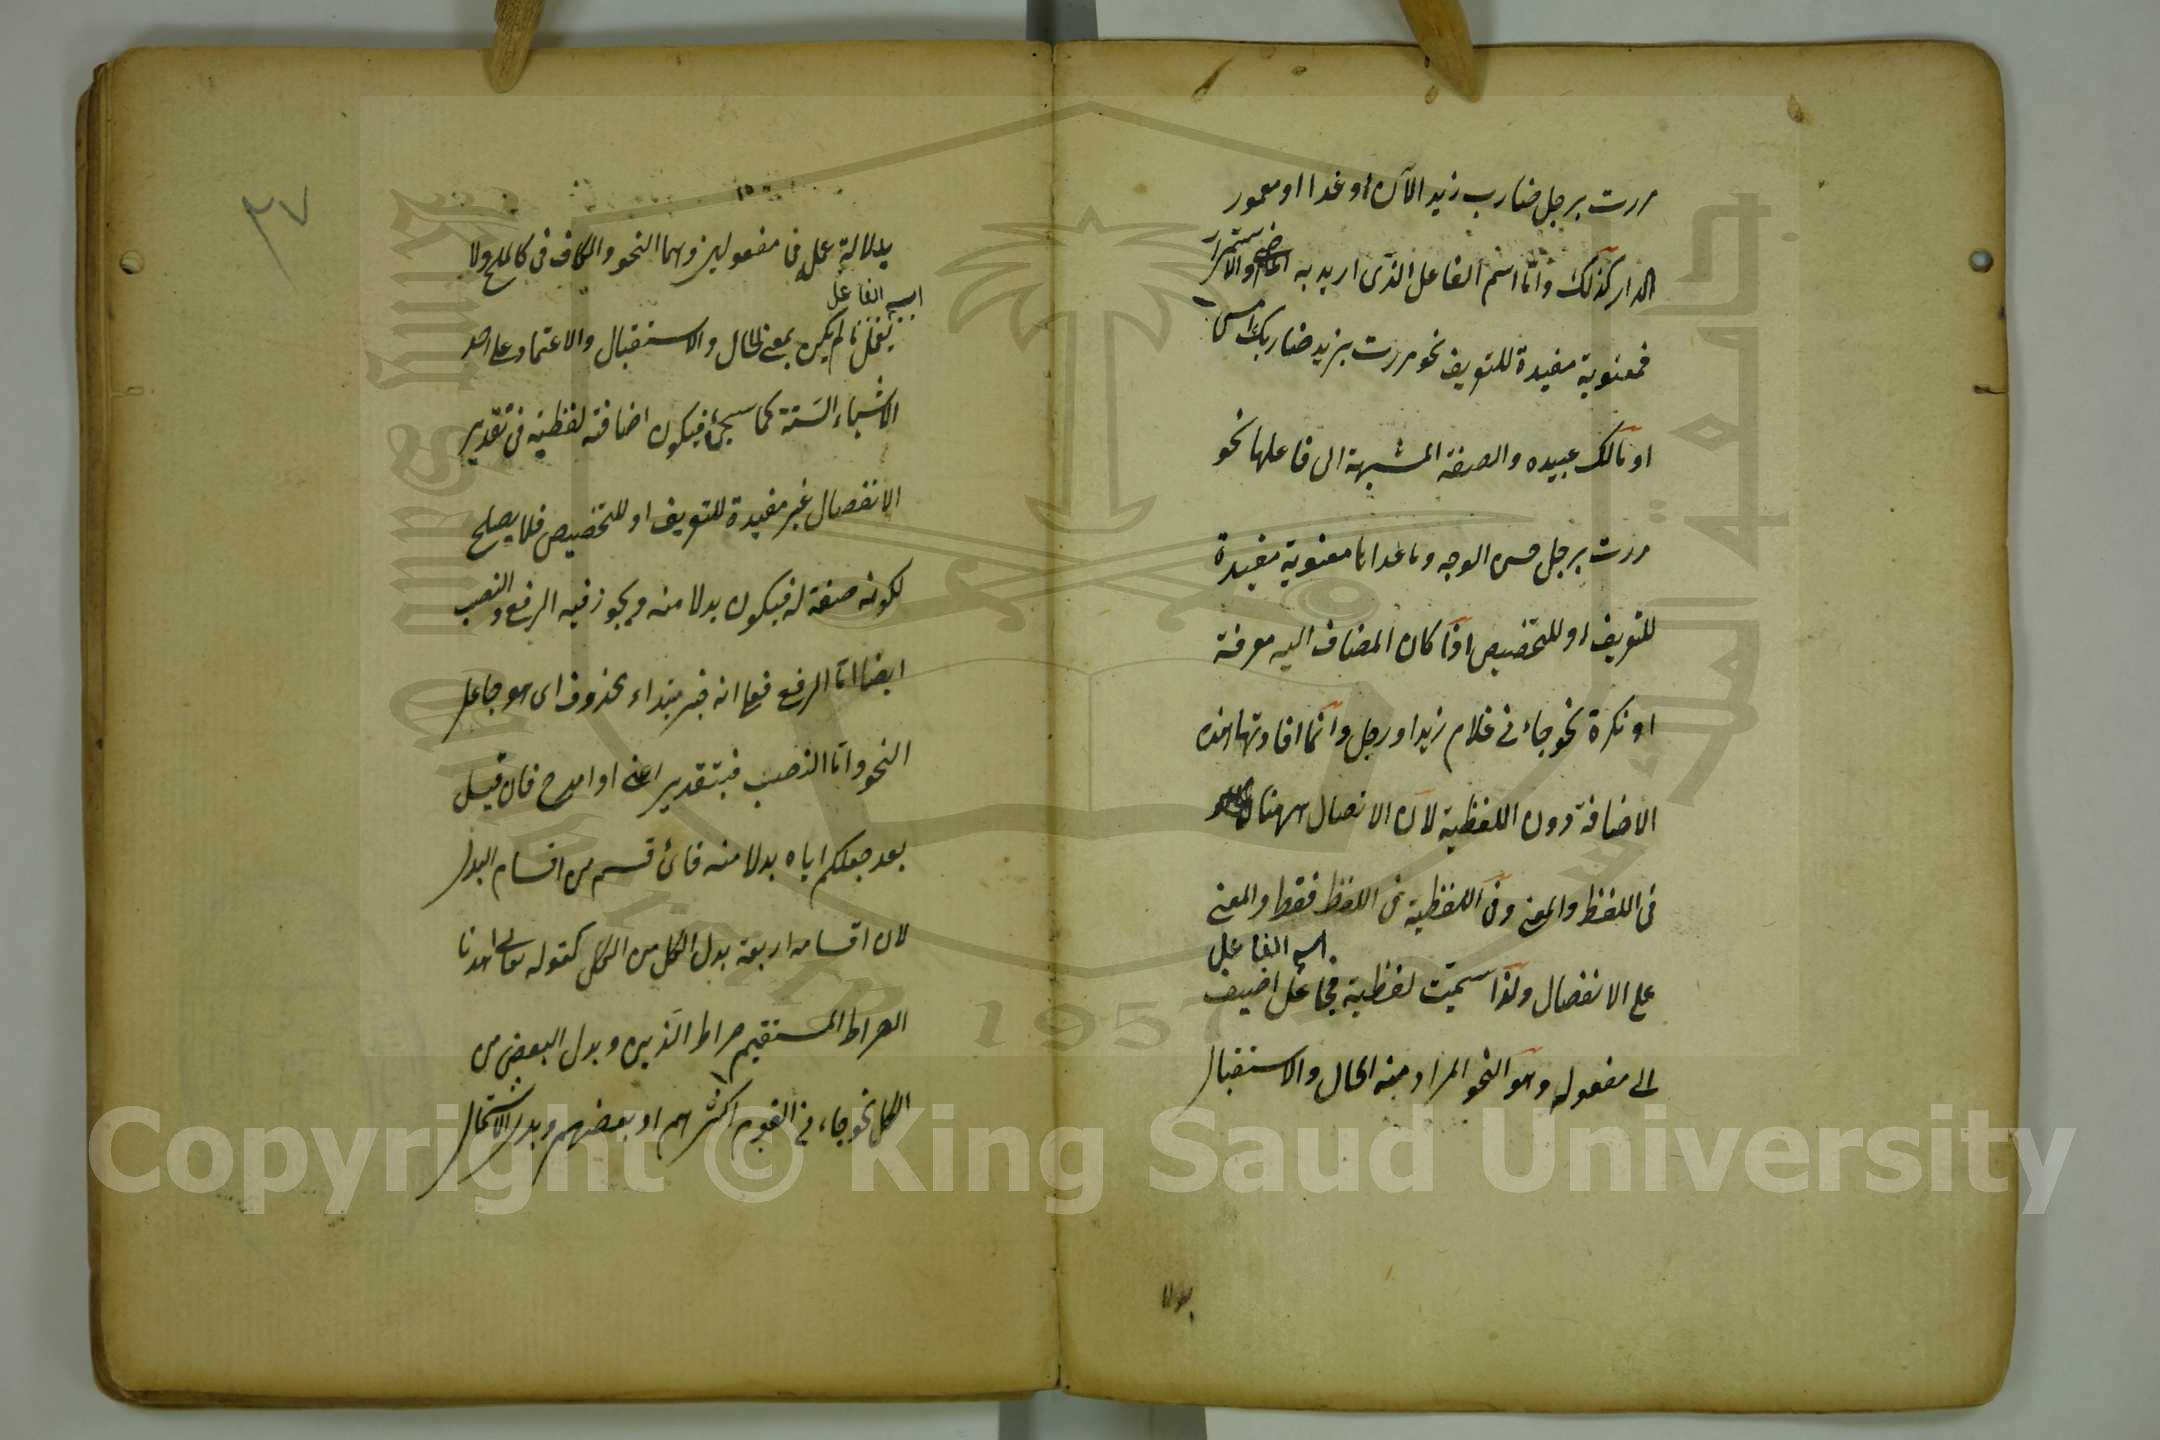 مررت برجل ضارب زيد الآن او غدا او معمور
الدار كذلك واما اسم الفاعل الذى اريد به الماضى والاستمرار
فمعنوية مفيدة للتعريف نحو مررت بزيد ضاربك امس
او مالك عبيده والصفة المشبهة الى فاعلها نحو
مررت برجل حسن الوجه وما عداها معنوية مفيدة
للتعريف او للتخصيص اذا كان المضاف اليه معرفة
او نكرة نحو جاءنى غلام زيد او رجل وانما افادتها هذه
الاضافة دون اللفظية لان الاتصال ههنا
فى اللفظ والمعنى وفى اللفظية فى اللفظ فقط والمعنى
اسم الفاعل
على الانفصال ولذا سميت لفظية فجاعل اضيف
الى مفعوله وهو النحو المراد منه الحال والاستقبال
بدلا
٣٧
بدلالة عمله فى مفعولين وهما النحو والكاف فى كالملح ولا
اسم الفاعل
يعمل ما لم يكن بمعنى الحال والاستقبال والاعتماد على احد
الاشياء الستة كما سيجئ فيكون اضافته لفظية فى تقدير
الانفصال غير مفيدة للتعريف او للتخصيص فلا يصلح
لكونه صفة له فيكون بدلا منه ويجوز فيه الرفع والنصب
ايضا اما الرفع فعلى انه خبر مبتداء محذوف اى هو جاعل
النحو واما النصب فبتقدير اعنى او امدح فان قيل
بعد جعلكم اياه بدلا منه فائ قسم من اقسام البدل
لان اقسامه اربعة بدل الكل من الكل كقوله تعالى اهدنا
الصراط المستقيم صراط الذين وبدل البعض من
الكل نحو جاءنى القوم اكثرهم او بعضهم وبدل الاشتمال
Copyright © King Saud University
1957